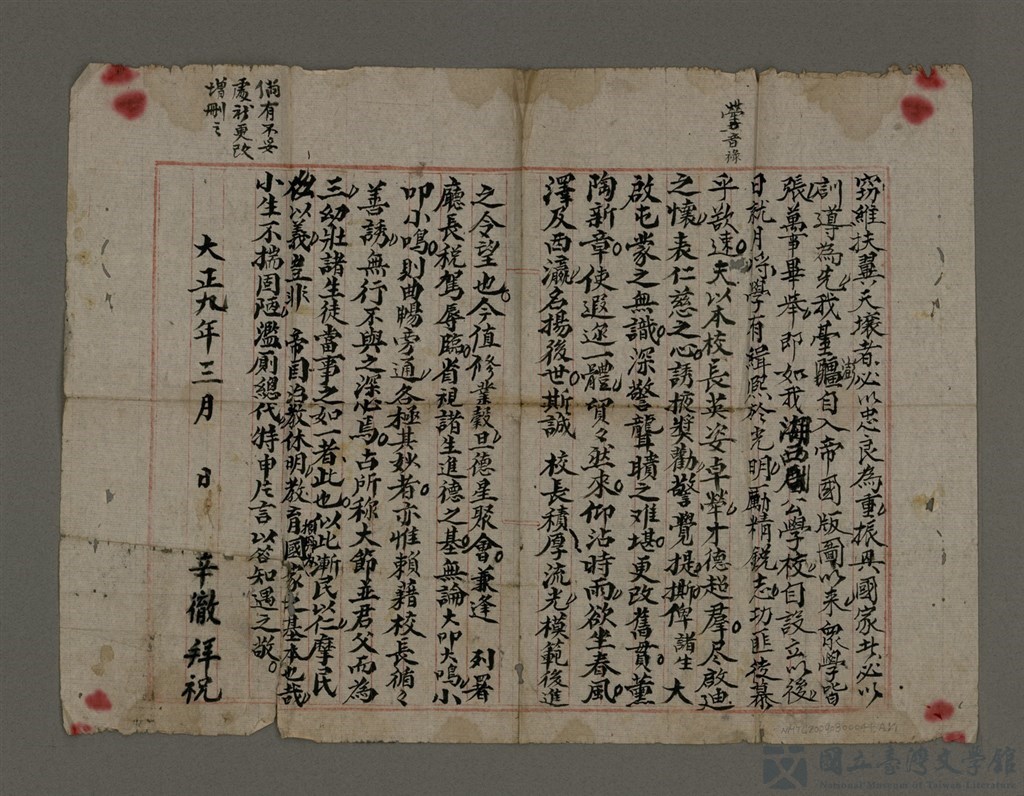 竊維扶翼天壤者必以忠良為重振興國家者必以
訓導為先我臺疆自入帝國版圖以來眾學皆
張萬事畢舉即如我湖西公學校自設立以後
日就月將學有緝熙於光明勵精銳志功匪後慕
乎欲速夫以本校長英姿卓犖才德超羣尽啟迪
之懷表仁慈之心誘掖獎勸警覺提撕俾諸生大
啟屯蒙之無識深警聾聵之难堪更改舊貫薰
陶新章使遐迩一體賓々然來仰沾時雨欲坐春風
澤及西瀛名揚後世斯誠 校長積厚流光模範後進
之令望也今值修業穀旦德星聚會兼逢 列署
廳長稅駕辱臨省視諸生進德之基無論大叩大鳴小
叩小鳴則曲暢旁通各極其妙者亦惟賴藉校長循々
善誘無行不與之深心焉古所称大節並君父而為
三幼壯諸生徒當事之如一者此也似此漸民以仁摩民
以義豈非 帝国治教休明教育國家之基本也哉
小生不揣固陋濫廁總代特申片言以答知遇之敬
大正九年三月 日 辛徹拜祝
犖音祿
澎
倘有不妥
處祈更改
增刪之
國立臺灣文學館
National Museum of Taiwan Literature